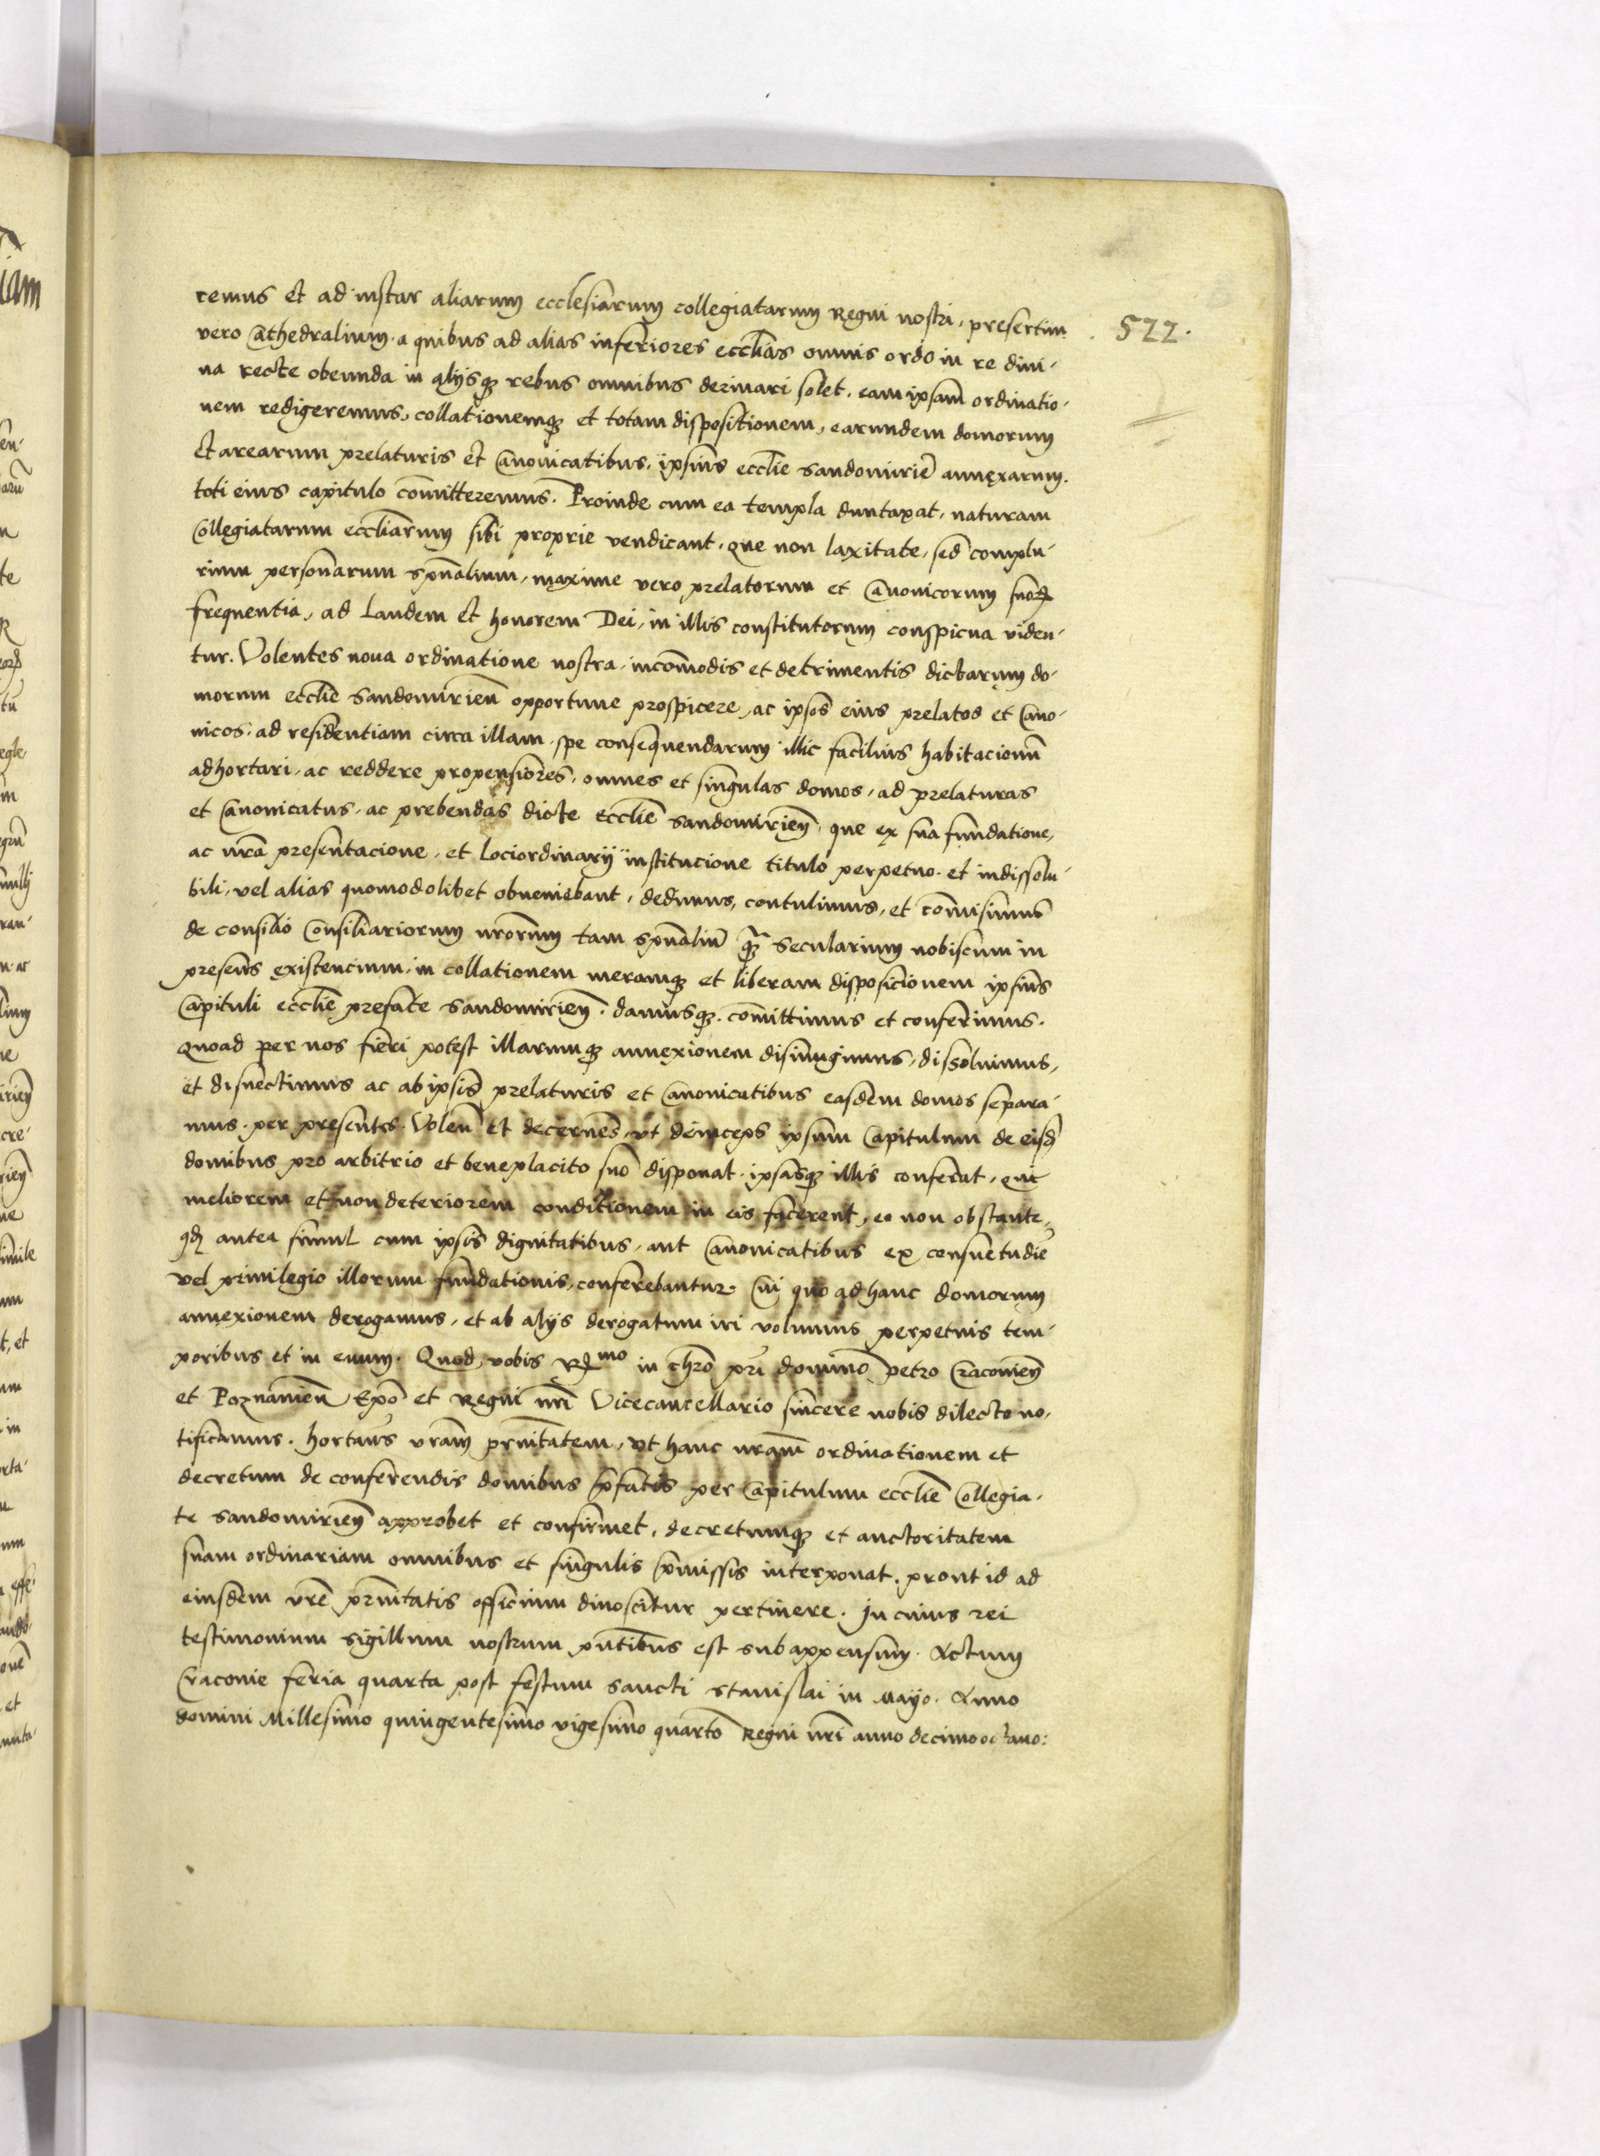 remus et ad instar aliarum ecclesiarum collegiatarum Regni nostri, presertim
522.
vero Cathedralium, a quibus ad alias inferiores ecclias omnis ordo in re divi-
na recte obeunda in alijsq rebus omnibus derivari solet, eam ipsam ordinatio-
nem redigeremus, collationemq et totam dispositionem, earundem domorum
et arearum prelaturis et Canonicatibus, ipsius ecclie Sandomirien annexarum,
toti eius capitulo comitteremus. Proinde cum ea templa duntaxat, naturam
Collegiatarum eccliarum sibi proprie vendicant, que non laxitate, sed complu-
rium personarum spualium, maxime vero prelatorum et Canonicorum suorum
frequentia, ad laudem et honorem Dei, in illis constitutorum conspicua viden-
tur. Volentes nova ordinatione nostra, incomodis et detrimentis dictarum do-
morum ecclie Sandomirien opportune prospicere, ac ipsos eius prelatos et Cano-
nicos, ad residentiam circa illam, spe consequendarum illic facilius habitacionu
adhortari, ac reddere propensiores, omnes et singulas domos, ad prelaturas
et Canonicatus, ac prebendas dicte Ecclie Sandomirien, que ex sua fundatione,
ac nra presentacione, et lociordinarij institucione titulo perpetuo, et indissolu-
bili, vel alias quomodolibet obveniebant, dedimus, contulimus, et comisimus
de consilio Consiliariorum nrorum tam spualiu q Secularium nobiscum in
presens existencium, in collationem meramq et liberam disposicionem ipsius
Capituli ecclie prefate Sandomirien, damusq, comittimus et conferimus,
quoad per nos fieri potest illarumq annexionem disiungimus, dissolvimus,
et disnectimus ac ab ipsis prelaturis et Canonicatibus easdem domos separa-
mus, per presentes. Volen et decernes, ut deinceps ipsum Capitulum de eisd
domibus pro arbitrio et beneplacito suo disponat, ipsasq illis conferat, qui
meliorem et non deteriorem conditionem in eis facerent, eo non obstante,
qd antea simul cum ipsis dignitatibus, aut Canonicatibus ex consuetudie
vel privilegio illorum fundationis, conferebantur. Cui quo ad hanc domorum
annexionem derogamus, et ab alijs derogatum iri volumus perpetuis tem-
poribus et in evum. Quod vobis Rdmo in chro pri domino Petro Cracovien
et Poznanien Epo et Regni nri Vicecancellario sincere nobis dilecto no-
tificamus. hortantes vram prnitatem, ut hanc nram ordinationem et
decretum de conferendis domibus pfatis per Capitulum ecclie Collegia-
te Sandomirien approbet et confirmet, decretumq et auctoritatem
suam ordinariam omnibus et singulis pmissis interponat, prout id ad
eiusdem vre prnitatis officium dinoscitur pertinere. In cuius rei
testimonium sigillum nostrum pntibus est subappensum. Actum
Cracovie feria quarta post festum Sancti Stanislai in Mayo. Anno
domini Millesimo quingentesimo vigesimo quarto Regni nri anno decimo octavo: